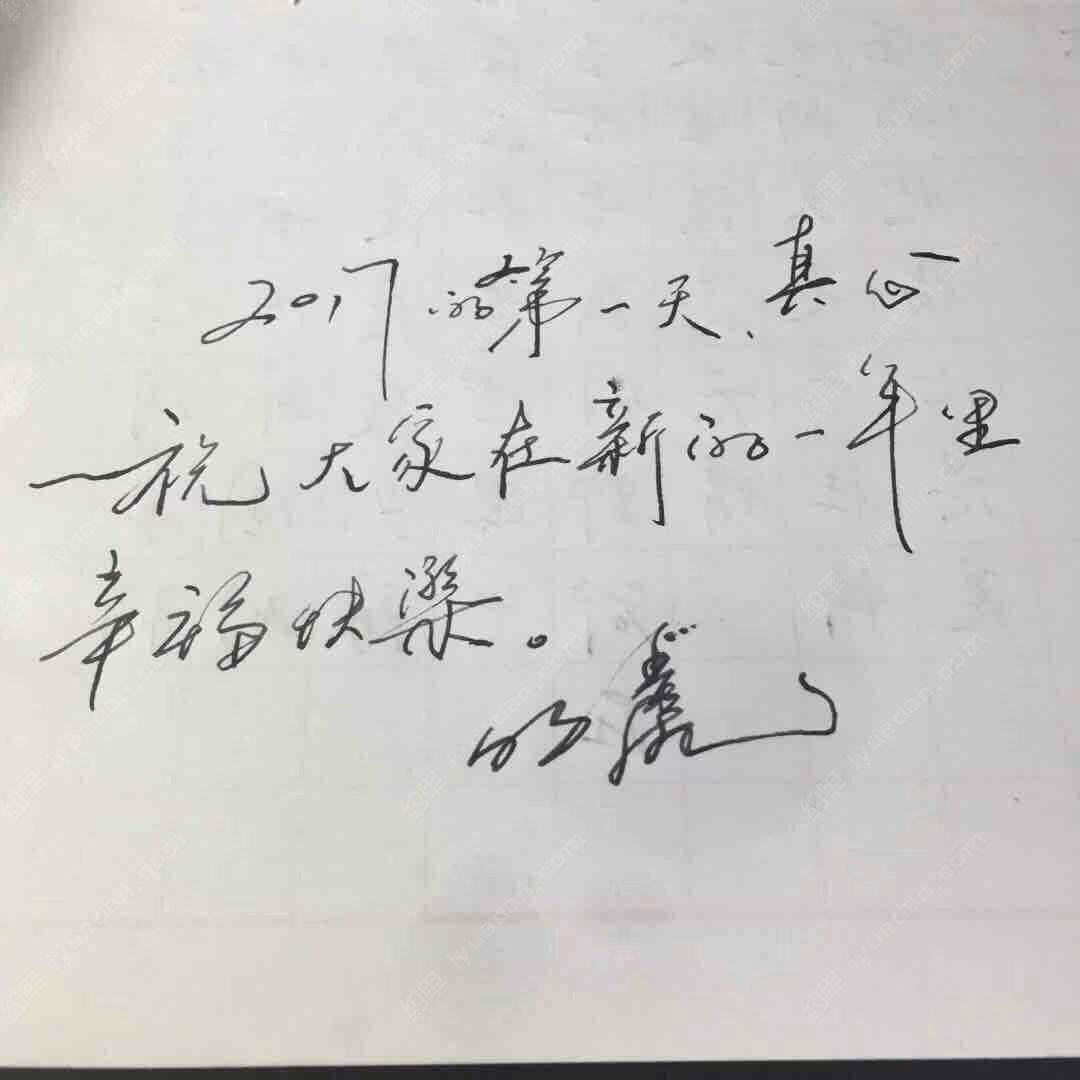 2017的第一天、真心
祝大家在新的一年里
幸福快樂。